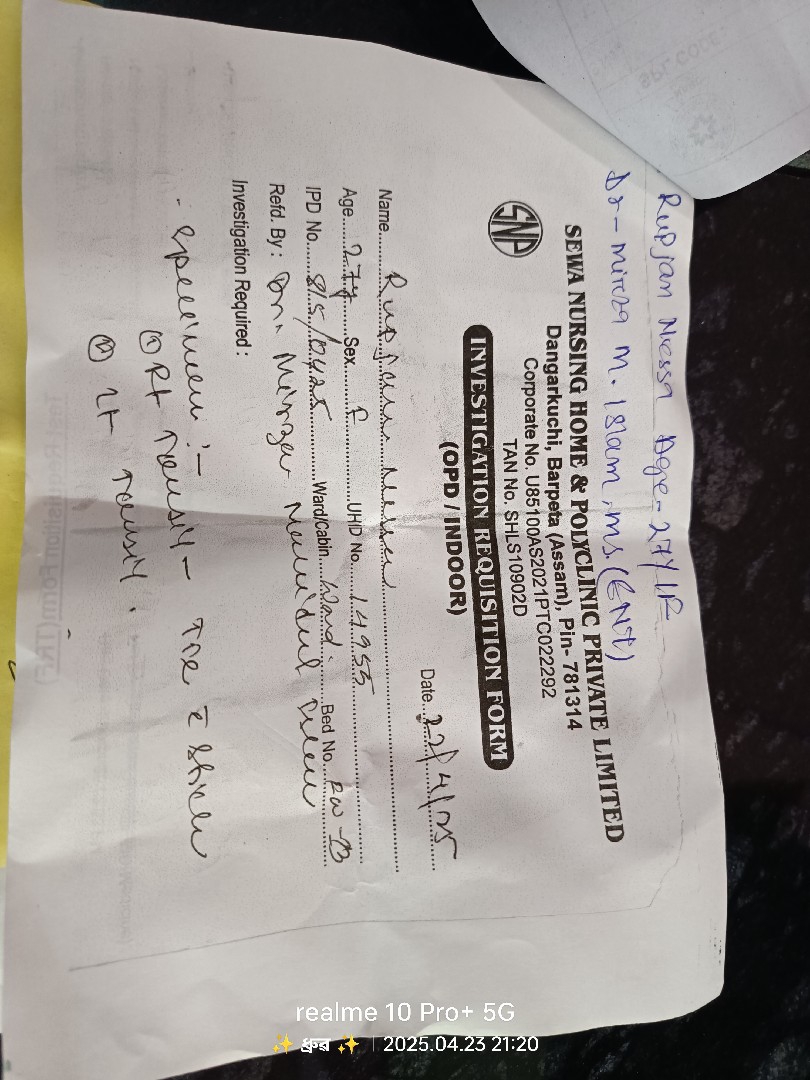 Rupjan Nessa Age - 27Y/F
Dr - Mirza M. Islam, MS (ENT)
SNP
SEWA NURSING HOME & POLYCLINIC PRIVATE LIMITED
Dangarkuchi, Barpeta (Assam), Pin- 781314
Corporate No. U85100AS2021PTC022292
TAN No. SHLS10902D
INVESTIGATION REQUISITION FORM
(OPD / INDOOR)
Date 22/4/25
Name Rupjan Nessa
Age 27y Sex F UHID No. 14955
IPD No. 815/0425 Ward/Cabin Ward Bed No. FW-
Refd. By: Dr. Mirza Islam
Investigation Required :
- Specimen :-
① Rt Tonsil -
② Lt Tonsil.
realme 10 Pro+ 5G
✨ ধ্রুব ✨ | 2025.04.23 21:20